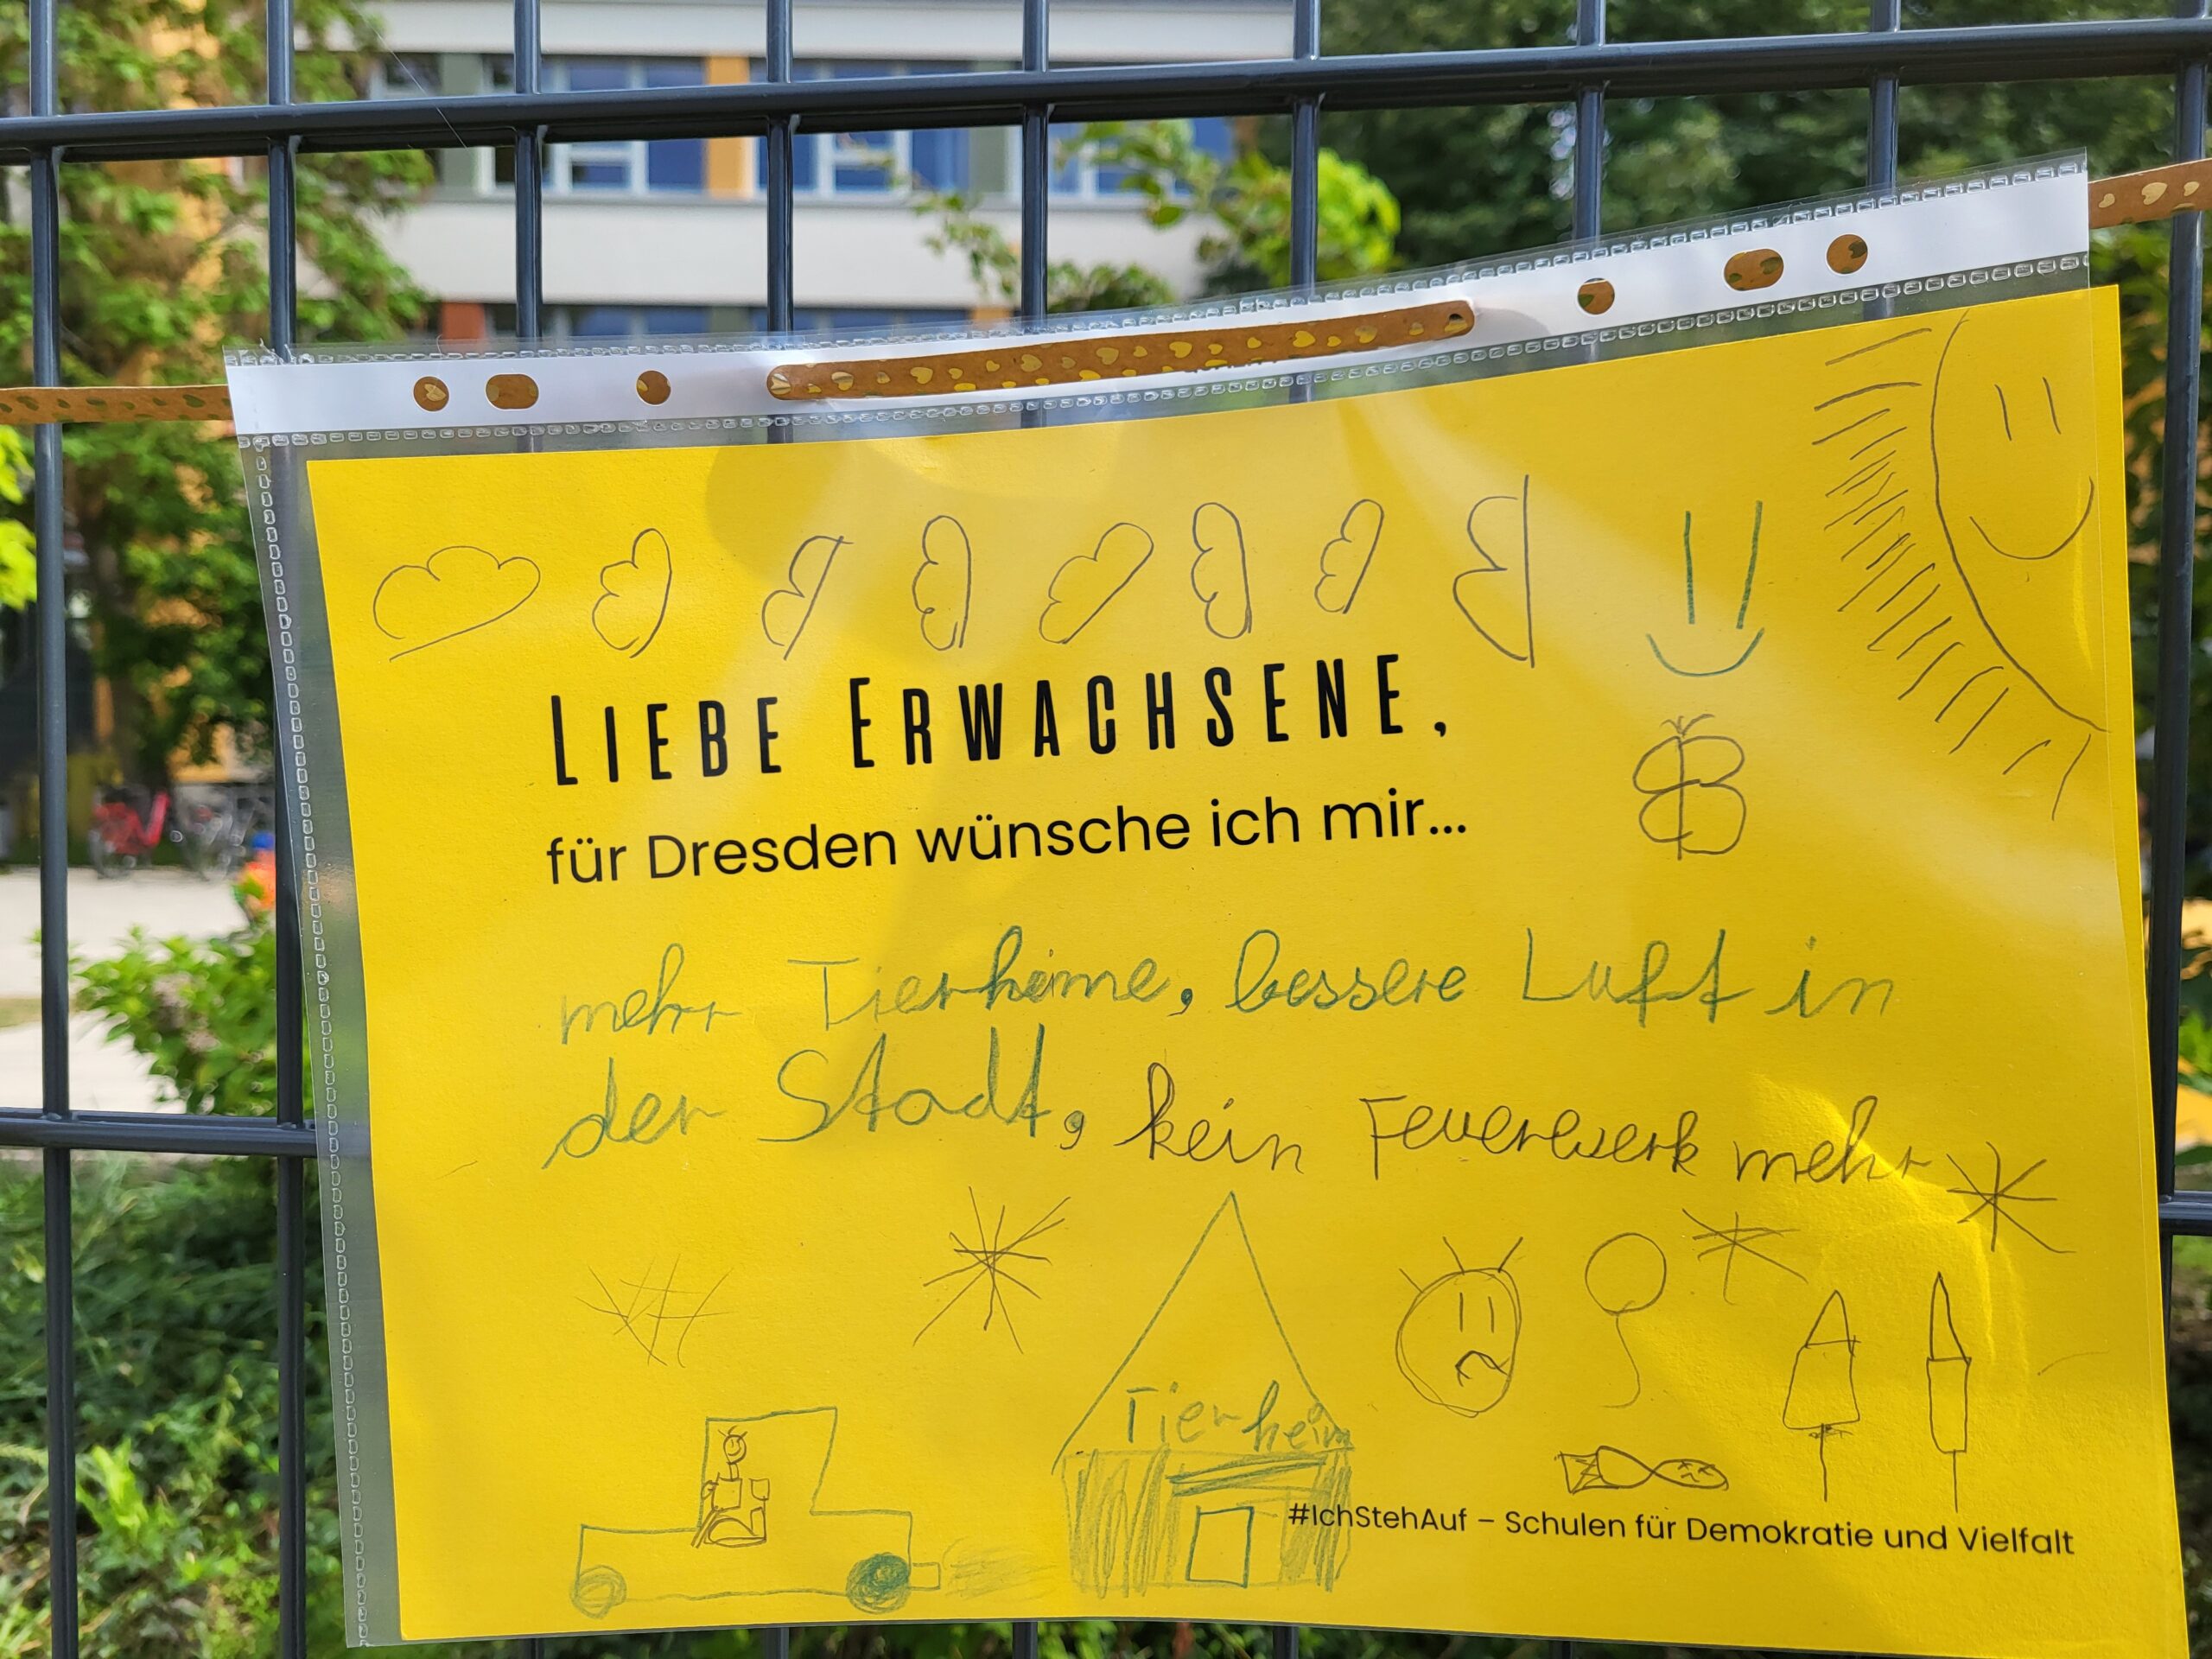 LIEBE ERWACHSENE,
für Dresden wünsche ich mir...
mehr Tierheime, bessere Luft in
der Stadt, kein Feuerwerk mehr
Tierheim
#IchStehAuf – Schulen für Demokratie und Vielfalt